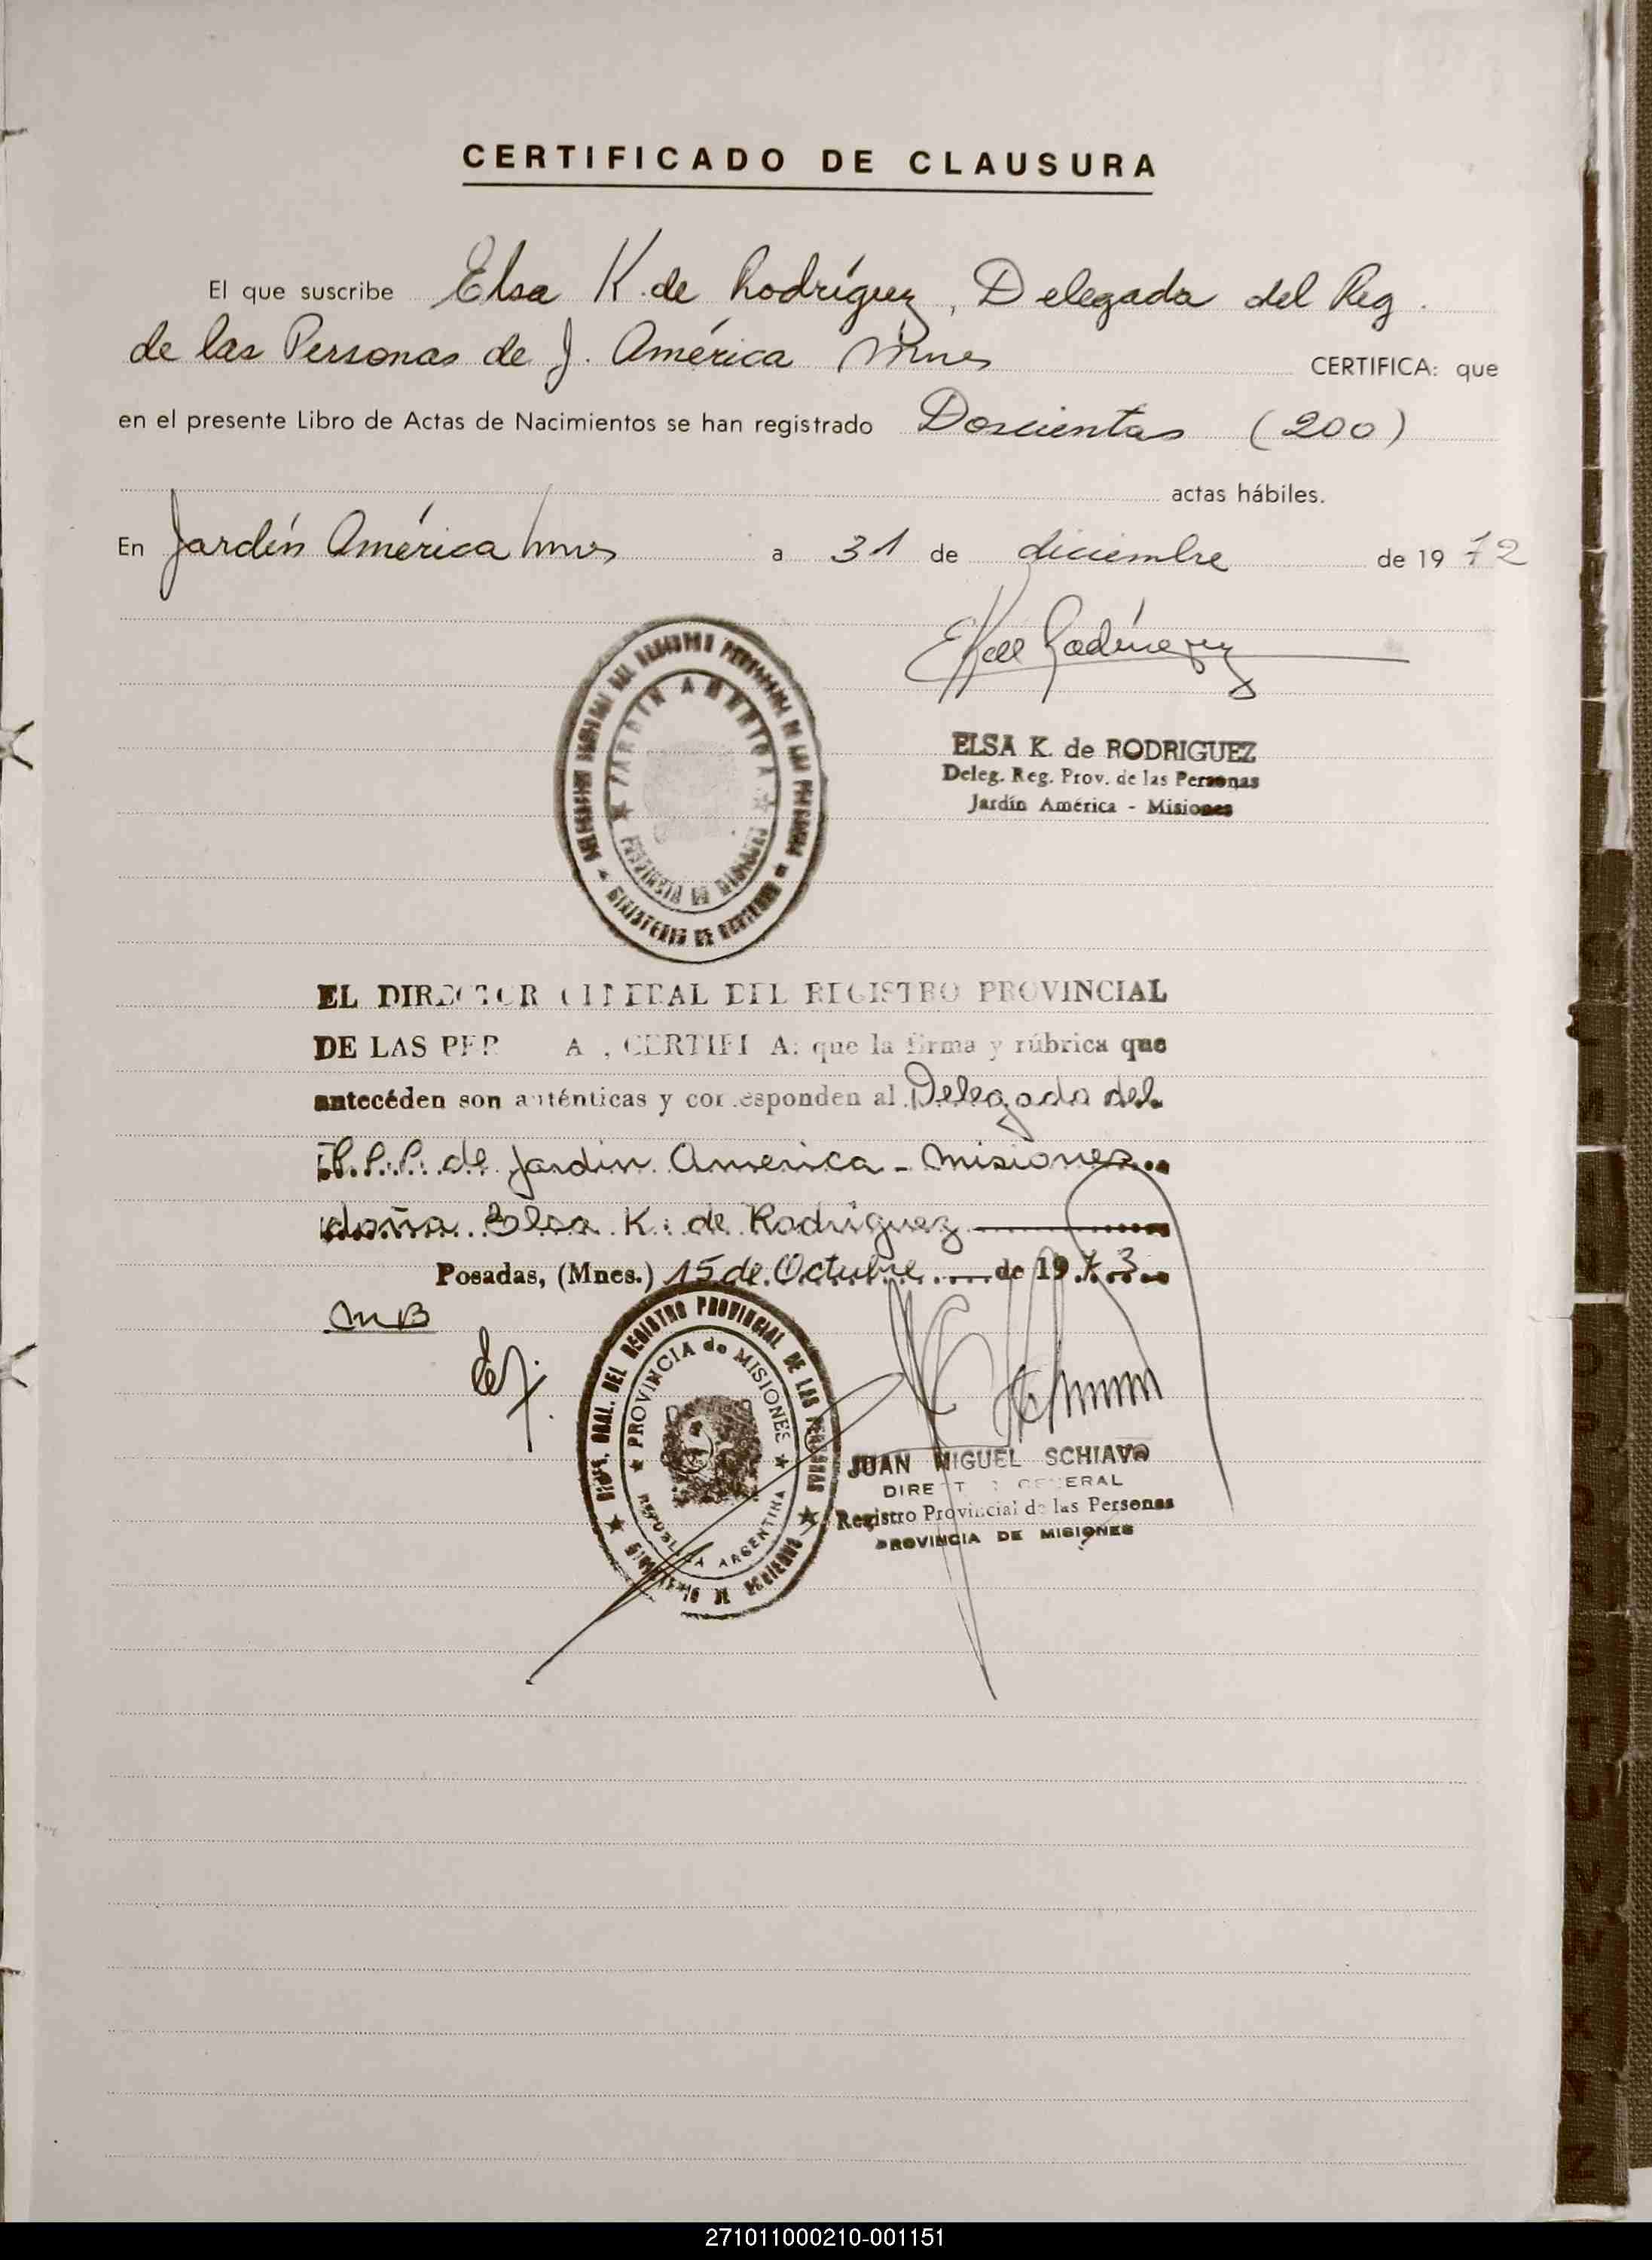 CERTIFICADO DE CLAUSURA
El que suscribe Elsa K. de Rodríguez, Delegada del Reg.
de las Personas de J. América Mnes CERTIFICA: que
en el presente Libro de Actas de Nacimientos se han registrado Doscientas (200)
actas hábiles.
En Jardín América Mnes a 31 de diciembre de 1972
ELSA K. de RODRIGUEZ
Deleg. Reg. Prov. de las Personas
Jardín América - Misiones
JARDIN AMERICA
PROVINCIA DE MISIONES
MINISTERIO DE GOBIERNO
EL DIRECTOR GENERAL DEL REGISTRO PROVINCIAL
DE LAS PER A , CERTIFI A: que la firma y rúbrica que
antecéden son auténticas y corresponden al Delegada del
R.P.P. de Jardin America - Misiones
doña Elsa K. de Rodriguez
Posadas, (Mnes.) 15 de Octubre de 1973
MB
DIRE. GRAL. DEL REGISTRO PROVINCIAL DE LAS PERSONAS
MINISTERIO DE GOBIERNO
PROVINCIA de MISIONES
REPUBLICA ARGENTINA
JUAN MIGUEL SCHIAVO
DIRECTOR GENERAL
Registro Provincial de las Personas
PROVINCIA DE MISIONES
S
T
U
V
W
X
Y
Z
271011000210-001151